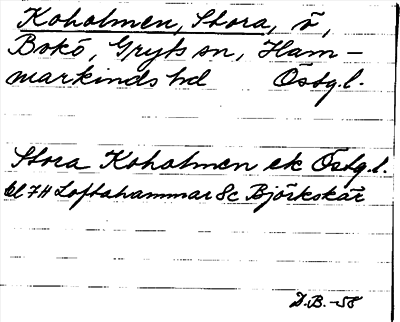 Koholmen, Stora, ö,
Bokö, Gryts sn, Ham-
markinds hd Östg.l.
Stora Koholmen ek Östg.l.
bl 7H Loftahammar 8c Björkskär
D.B.-58